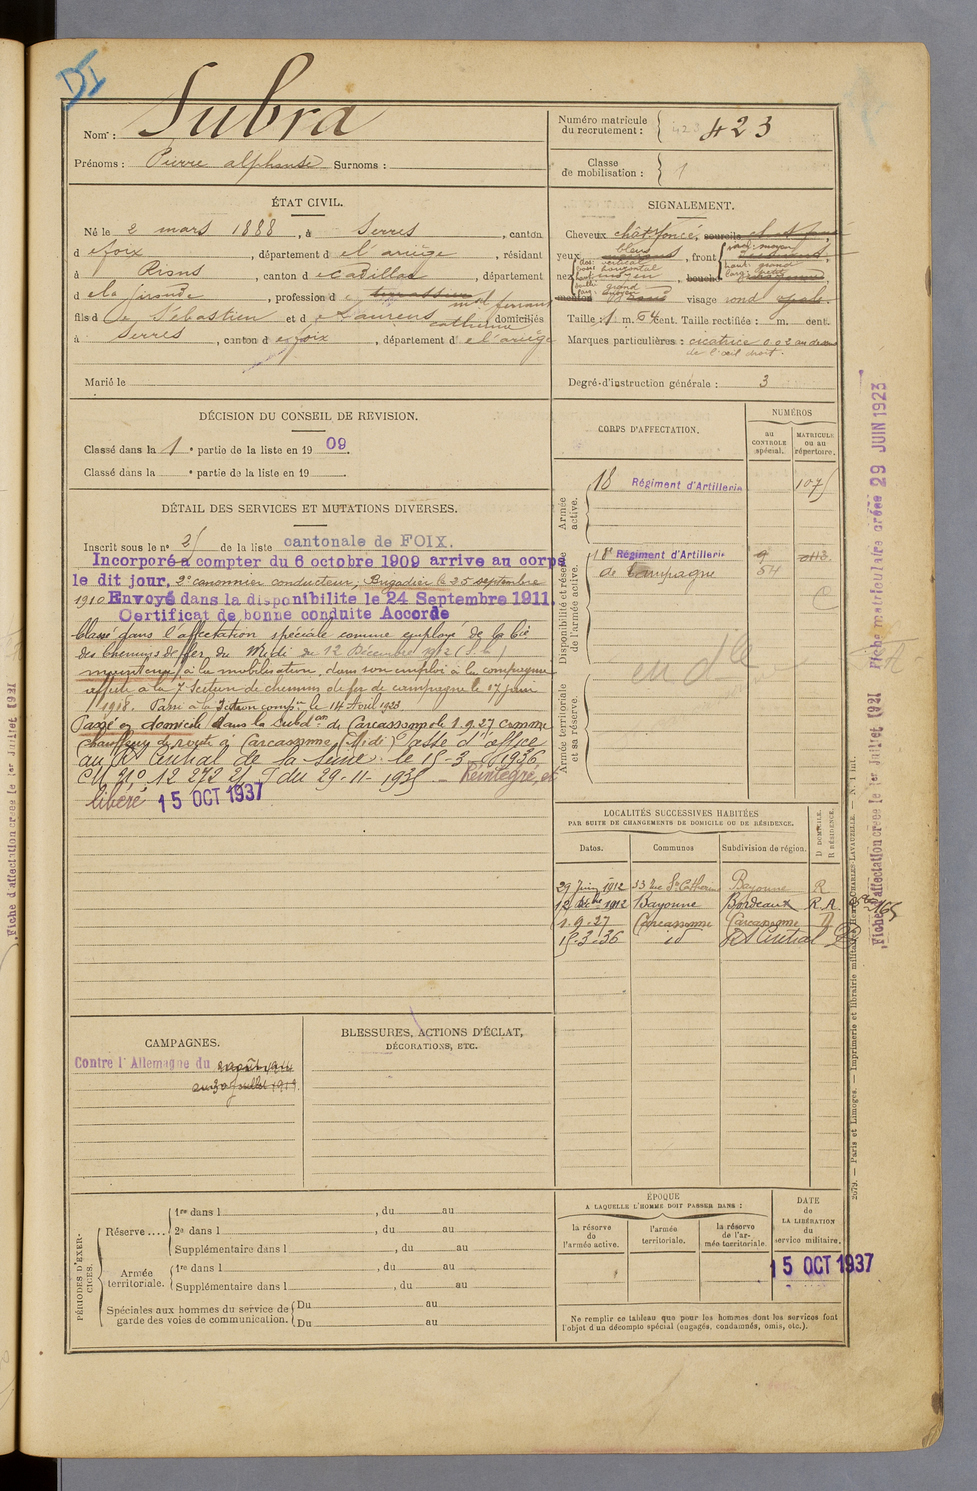 DI
Nom : Subra
Prénoms : Pierre alphonse Surnoms :
Numéro matricule du recrutement : 423
Classe de mobilisation : 1
ÉTAT CIVIL.
Né le 2 mars 1888, à Serres, canton
d e foix, département d e l'ariège, résidant
à Rions, canton d e Cadillac, département
d e la gironde, profession d
fils d e Sébastien et d e Laurens Catherine domiciliés
à Serres, canton d e foix, département d e l'ariège
Marié le
SIGNALEMENT.
Cheveux chât foncé, sourcils
yeux bleus, front
nez moyen, bouche
menton visage rond
Taille : 1 m. 64 cent. Taille rectifiée : m. cent.
Marques particulières : cicatrice 0.02 au dessus
de l'œil droit.
Degré d'instruction générale : 3
DÉCISION DU CONSEIL DE REVISION.
Classé dans la 1 e partie de la liste en 1909.
Classé dans la e partie de la liste en 19
DÉTAIL DES SERVICES ET MUTATIONS DIVERSES.
Inscrit sous le n° 25 de la liste cantonale de FOIX.
Incorporé à compter du 6 octobre 1909 arrive au corps
le dit jour, 2e canonnier conducteur, Brigadier le 25 septembre
1910 Envoyé dans la disponibilite le 24 Septembre 1911.
Certificat de bonne conduite Accordé
Classé dans l'affectation spéciale comme employé de la Cie
des Chemins de fer du Midi du 12 Décembre 1912
maintenu à la mobilisation dans son emploi à la compagnie
affecté à la 7 Section de chemins de fer de campagne le 17 juin
1918. Passé à la Section comp. le 14 Aout 1923
Passé en domicile dans la Subdon de Carcassonne le 1.9.27 comme
chauffeur de route à Carcassonne (Midi) Passé d'office
au Rt Central de la Seine le 15-3-1936
CM n° 12 272 du 29-11-1935 Réintégré, et
libéré 15 OCT 1937
CORPS D'AFFECTATION.
NUMÉROS
au CONTROLE spécial.
MATRICULE ou au répertoire.
Armée active.
18 Régiment d'Artillerie 1075
Disponibilité et réserve de l'armée active.
18e Régiment d'Artillerie
de Campagne 54
Armée territoriale et sa réserve.
LOCALITÉS SUCCESSIVES HABITÉES
PAR SUITE DE CHANGEMENTS DE DOMICILE OU DE RÉSIDENCE.
Dates. Communes Subdivision de région. D DOMICILE. R RÉSIDENCE.
29 Juin 1912 33 rue Ste Catherine Bayonne R
12 Xbre 1912 Bayonne Bordeaux R.A.
1.9.27 Carcassonne Carcassonne D
15.3.36 id Rt Central D
CAMPAGNES.
Contre l'Allemagne du
BLESSURES, ACTIONS D'ÉCLAT,
DÉCORATIONS, ETC.
PÉRIODES D'EXERCICES.
Réserve .... 1re dans l , du au
2e dans l , du au
Supplémentaire dans l , du au
Armée territoriale. 1re dans l , du au
Supplémentaire dans l , du au
Spéciales aux hommes du service de garde des voies de communication. Du au
Du au
ÉPOQUE
A LAQUELLE L'HOMME DOIT PASSER DANS :
la réserve de l'armée active.
l'armée territoriale.
la réserve de l'armée territoriale.
DATE de LA LIBÉRATION du service militaire.
15 OCT 1937
Ne remplir ce tableau que pour les hommes dont les services font
l'objet d'un décompte spécial (engagés, condamnés, omis, etc.).
2679. — Paris et Limoges. — Imprimerie et librairie militaires Henri CHARLES-LAVAUZELLE. — N. 1 int.
Fiche d'affectation créée le 1er Juillet 1921
Fiche matriculaire créée 29 JUIN 1923
Fiche d'affectation créée le 1er Juillet 1921